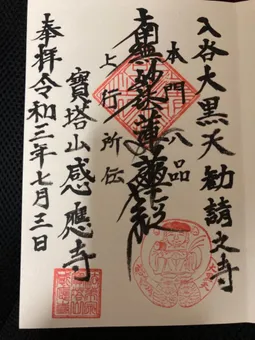 入谷大黒天勧請之寺
本門八品
南無妙法蓮華経
上行所伝
寶塔山感應寺
奉拝令和三年七月三日